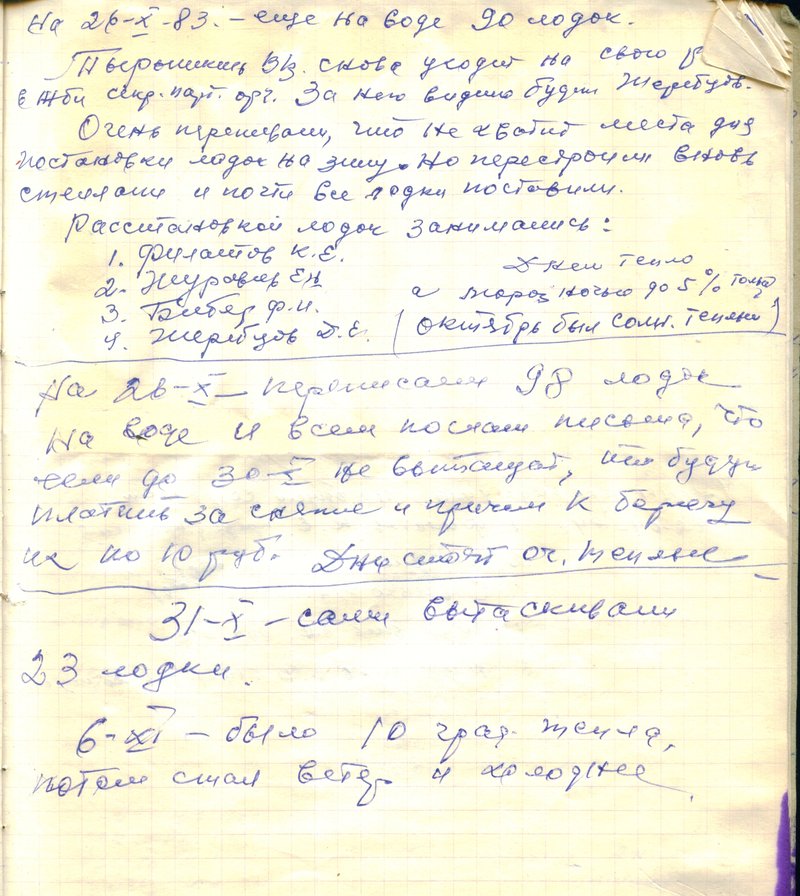 На 26-X-83. – еще на воде 90 лодок.
снова уходит на свою
в ЖБИ секр. парт. орг. За него видимо будет Жеребцов.
Очень переживали, что не хватит места для
постановки лодок на зиму. Но перестроили вновь
стеллажи и почти все лодки поставили.
Расстановкой лодок занимались:
1. Филатов К.Е.
2. Журавлев Е.Н.
3. Бибяев Ф.И.
4. Жеребцов Д.Е.
Днем тепло
а мороз ночью до 5% только
(Октябрь был солн. теплый)
На 26-X – переписали 98 лодок
на воде и всем послали письма, что
если до 30-X не вытащат, то будут
платить за снятие и причал к берегу
их по 10 руб. Дни стоят оч. теплые
31-X – сами вытаскивали
23 лодки.
6-XI – было 10 град. тепла,
потом стал ветер и холоднее.